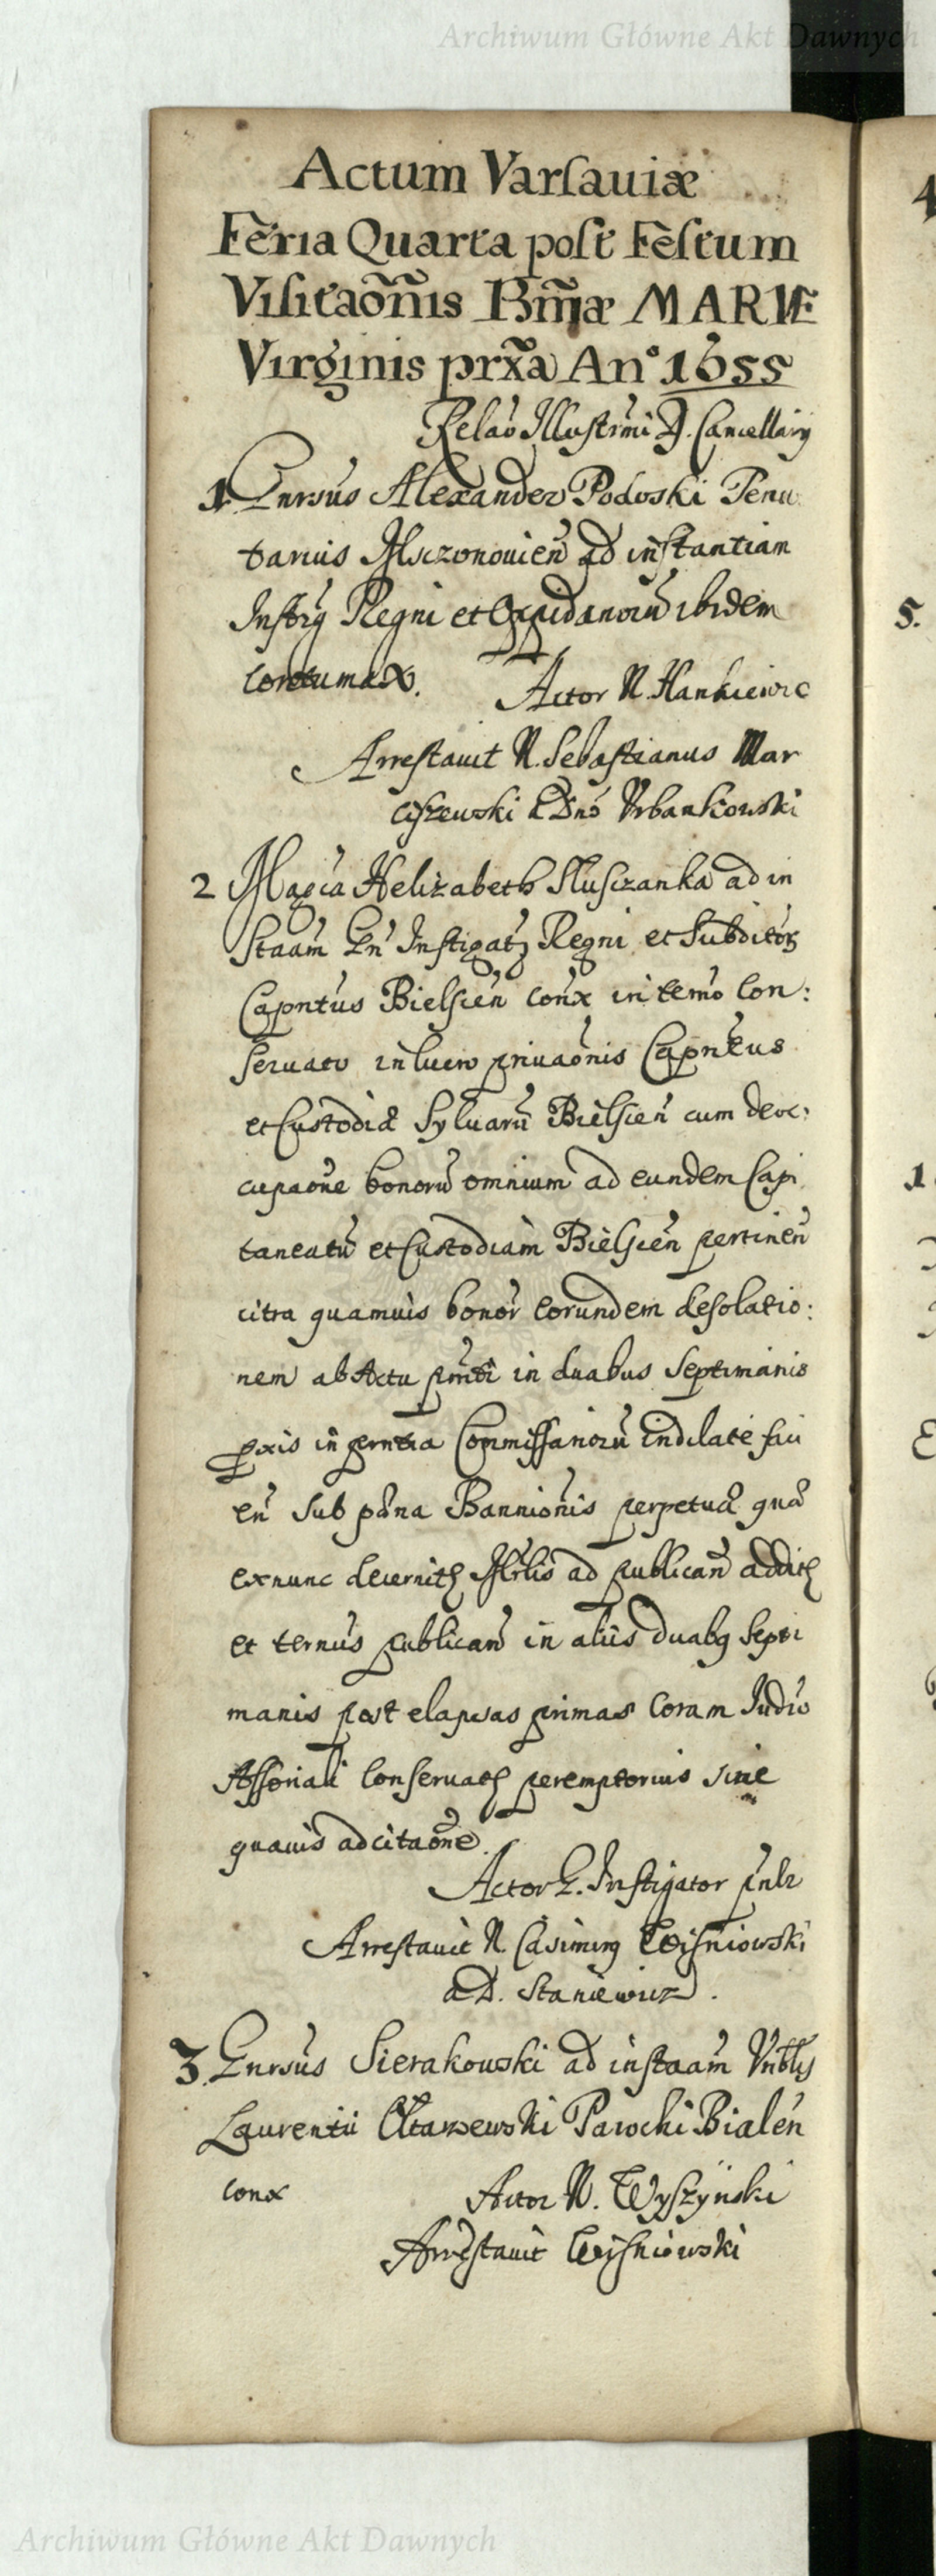 Archiwum Główne Akt Dawnych
Actum Varsaviæ
Feria Quarta post Festum
Visitaõnis Bmæ MARIÆ
Virginis prxa An° 1655
Relaõ Illustrmi D. Cancellarij
1. Gnrsus Alexander Podoski Tenu
tarius Msczonouien ad instantiam
Instrig Regni et Oppidanorũ ibidem
contumax. Actor N. Hankiewic
Arrestauit N. Sebastianus Mar
ciszewski a Dnõ Vrbankowski
2 Magca Helizabeth Slusczanka ad in
staam Gn Instigatz Regni et Subditor
Capntus Bielscen conx in termo con:
seruato in lucro priuaõnis Capntus
et Custodiæ Syluarũ Bielscen cum deoc:
cupaõne bonorũ omnium ad eundem Capi
taneatũ et Custodiam Bielscen pertinen
citra quamuis bonor eorundem desolatio:
nem ab Actu pmti in duabus Septimanis
pxis in prntia Commissariorũ indilate faci
en sub pæna Bannionis perpetuæ quã
exnunc decernitz Mrlis ad publican additz
et ternus publican in aliis duabq Septi
manis post elapsas primas coram Iudio
Assoriali conseruatz peremptorius sine
quauis adcitaõne.
Actor G. Instigator pnlr
Arrestauit N. Casimirq Wisniowski
a D. Staniewicz.
3. Gnrsus Sierakowski ad instaam Vnblis
Laurentii Oltarzewski Parochi Bialen
conx Actor N. Wyszÿnski
Arrestauit Wisniowski
4
5.
1
Archiwum Główne Akt Dawnych